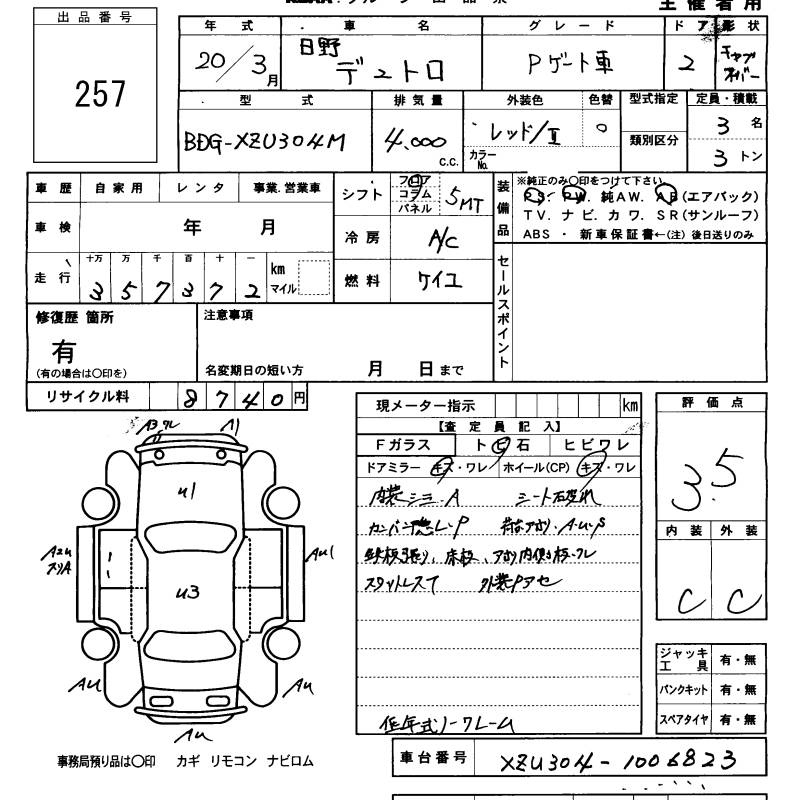 主催者用
出品番号
257
年式 車名 グレード ドア 形状
20/3月 日野 デュトロ Pゲート車 2
型式 排気量 外装色 色替 型式指定 定員・積載
BDG-XZU304M 4,000 c.c. レッド/II カラーNo. 類別区分 3名 3トン
車歴 自家用 レンタ 事業.営業車
車検 年 月
走行 十万 万 千 百 十 一 km マイル
357372
シフト フロア コラム パネル 5MT
冷房 A/C
燃料 ケイユ
装備品 ※純正のみ〇印をつけて下さい
PS. PW. 純AW. AB(エアバック)
TV. ナビ. カワ. SR(サンルーフ)
ABS ・ 新車保証書←(注) 後日送りのみ
セールスポイント
修復歴 箇所
有
(有の場合は〇印を)
注意事項
名変期日の短い方 月 日まで
リサイクル料 8740円
現メーター指示 km
【査定員記入】
Fガラス ト ビ 石 ヒビワレ
ドアミラー キズ・ワレ ホイール(CP) キズ・ワレ
内装シミ.A シート
スタットレスT
低年式ノークレーム
評価点
3.5
内装 外装
C C
A1
U1
U3
AU1
A2U
AU
AU
AU
ジャッキ工具 有・無
パンクキット 有・無
スペアタイヤ 有・無
事務局預り品は〇印 カギ リモコン ナビロム
車台番号 XZU304-1006823